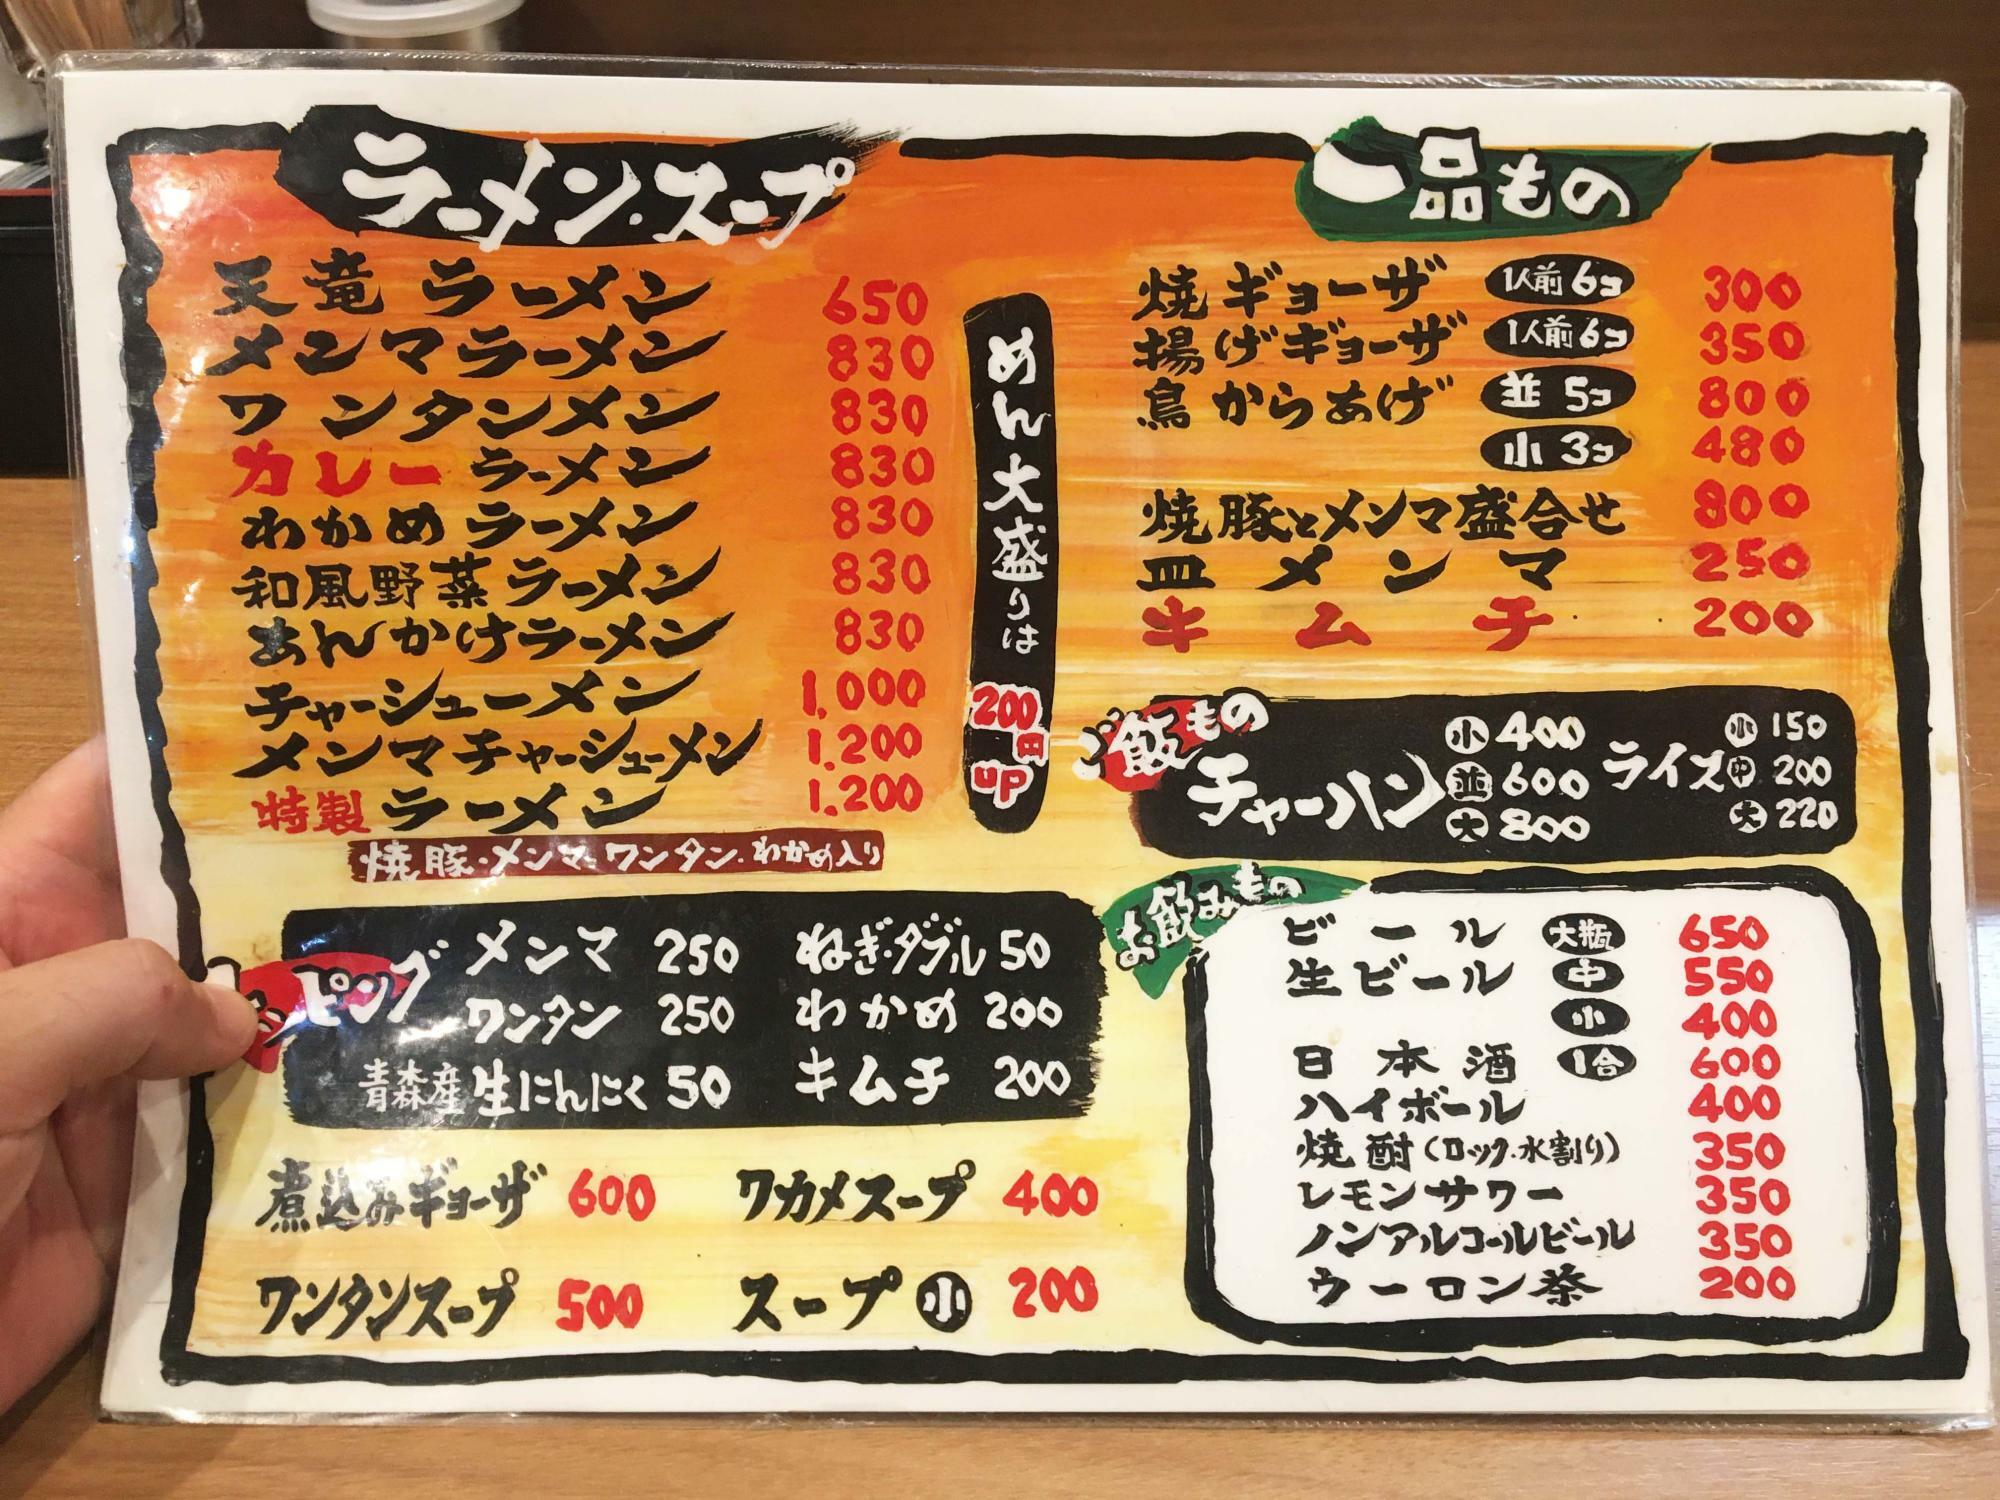 ラーメン・スープ
天竜ラーメン 650
メンマラーメン 830
ワンタンメン 830
カレーラーメン 830
わかめラーメン 830
和風野菜ラーメン 830
あんかけラーメン 830
チャーシューメン 1,000
メンマチャーシューメン 1,200
特製ラーメン 1,200
焼豚・メンマ・ワンタン・わかめ入り
めん大盛りは 200円 UP
ピング
メンマ 250 ねぎ・ダブル 50
ワンタン 250 わかめ 200
青森産生にんにく 50 キムチ 200
煮込みギョーザ 600 ワカメスープ 400
ワンタンスープ 500 スープ 小 200
一品もの
焼ギョーザ 1人前6コ 300
揚げギョーザ 1人前6コ 350
鳥からあげ 並5コ 800
小3コ 480
焼豚とメンマ盛合せ 800
皿メンマ 250
キムチ 200
ご飯もの
チャーハン 小 400 並 600 大 800
ライス 小 150 中 200 大 220
お飲みもの
ビール 大瓶 650
生ビール 中 550
小 400
日本酒 1合 600
ハイボール 400
焼酎(ロック・水割り) 350
レモンサワー 350
ノンアルコールビール 350
ウーロン茶 200